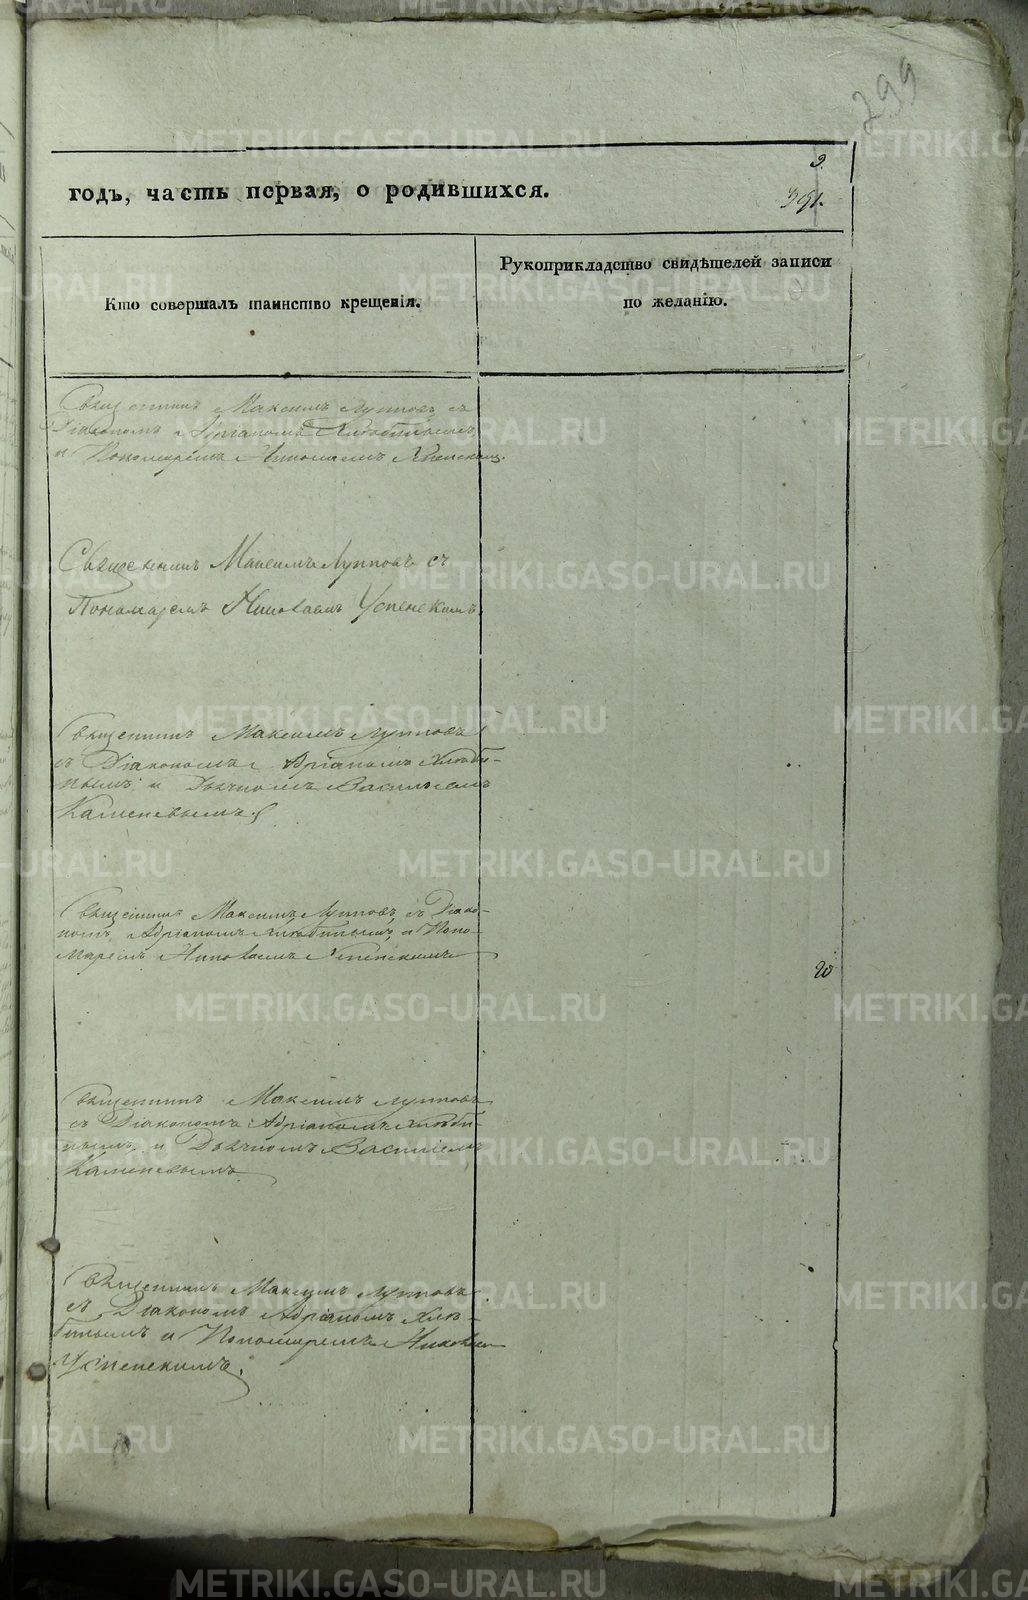 299
9
391.
годъ, часть первая, о родившихся.
Кто совершалъ таинство крещенія.
Рукоприкладство свидѣтелей записи
по желанію.
Священникъ Максимъ Лупповъ съ
Діакономъ Адріаномъ Хлѣбинымъ,
и Пономаремъ Николаемъ Успенскимъ.
Священникъ Максимъ Лупповъ съ
Пономаремъ Николаемъ Успенскимъ.
Священникъ Максимъ Лупповъ
съ Діакономъ Адріаномъ Хлѣби-
нымъ, и Дьячкомъ Васильемъ
Каменевымъ.
Священникъ Максимъ Лупповъ, съ Діако-
номъ, Адріаномъ Хлѣбинымъ, и Поно-
маремъ Николаемъ Успенскимъ
20
Священникъ Максимъ Лупповъ
съ Діакономъ Адріаномъ Хлѣби-
нымъ, и Дьячкомъ Василіемъ
Каменевымъ.
Священникъ Максимъ Лупповъ
съ Діакономъ Адріаномъ Хлѣ-
бинымъ и Пономаремъ Николаемъ
Успенскимъ.
METRIKI.GASO-URAL.RU